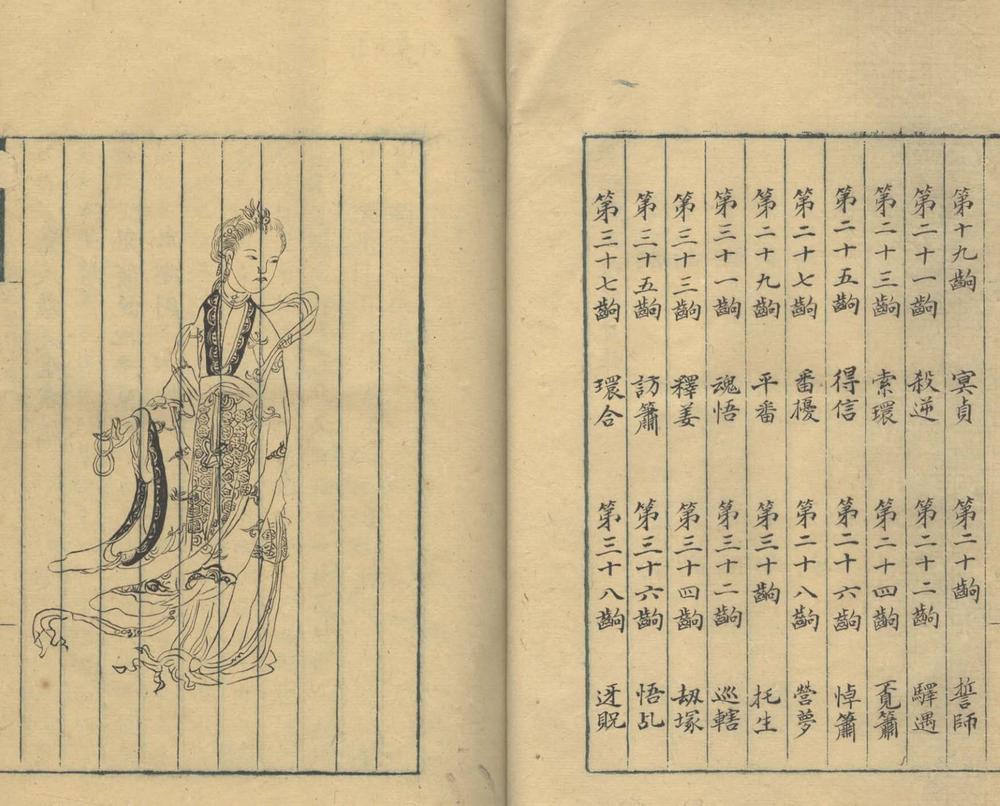 第十九齣 冥貞 第二十齣 誓師
第二十一齣 殺逆 第二十二齣 驛遇
第二十三齣 索環 第二十四齣 覓簫
第二十五齣 得信 第二十六齣 悼簫
第二十七齣 番擾 第二十八齣 營夢
第二十九齣 平番 第三十齣 托生
第三十一齣 魂悟 第三十二齣 巡轄
第三十三齣 釋姜 第三十四齣 刼塚
第三十五齣 訪簫 第三十六齣 悟乩
第三十七齣 環合 第三十八齣 迓貺